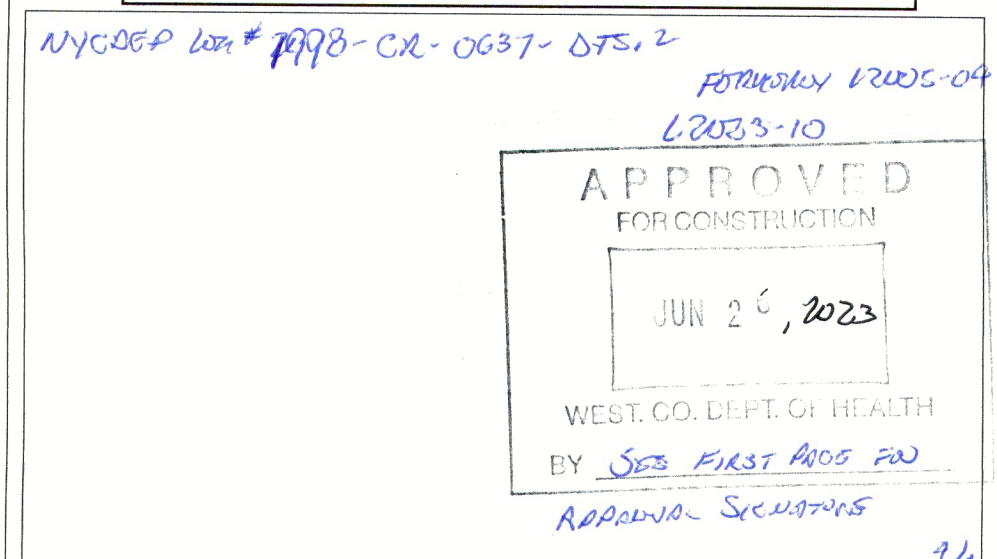 NYCDEP Log # 1998-CR-0637-DTS.2
FORMERLY L2005-04
L2023-10
APPROVED
FOR CONSTRUCTION
JUN 26, 2023
WEST. CO. DEPT. OF HEALTH
BY SEE FIRST PAGE FOR
APPROVAL SIGNATURE